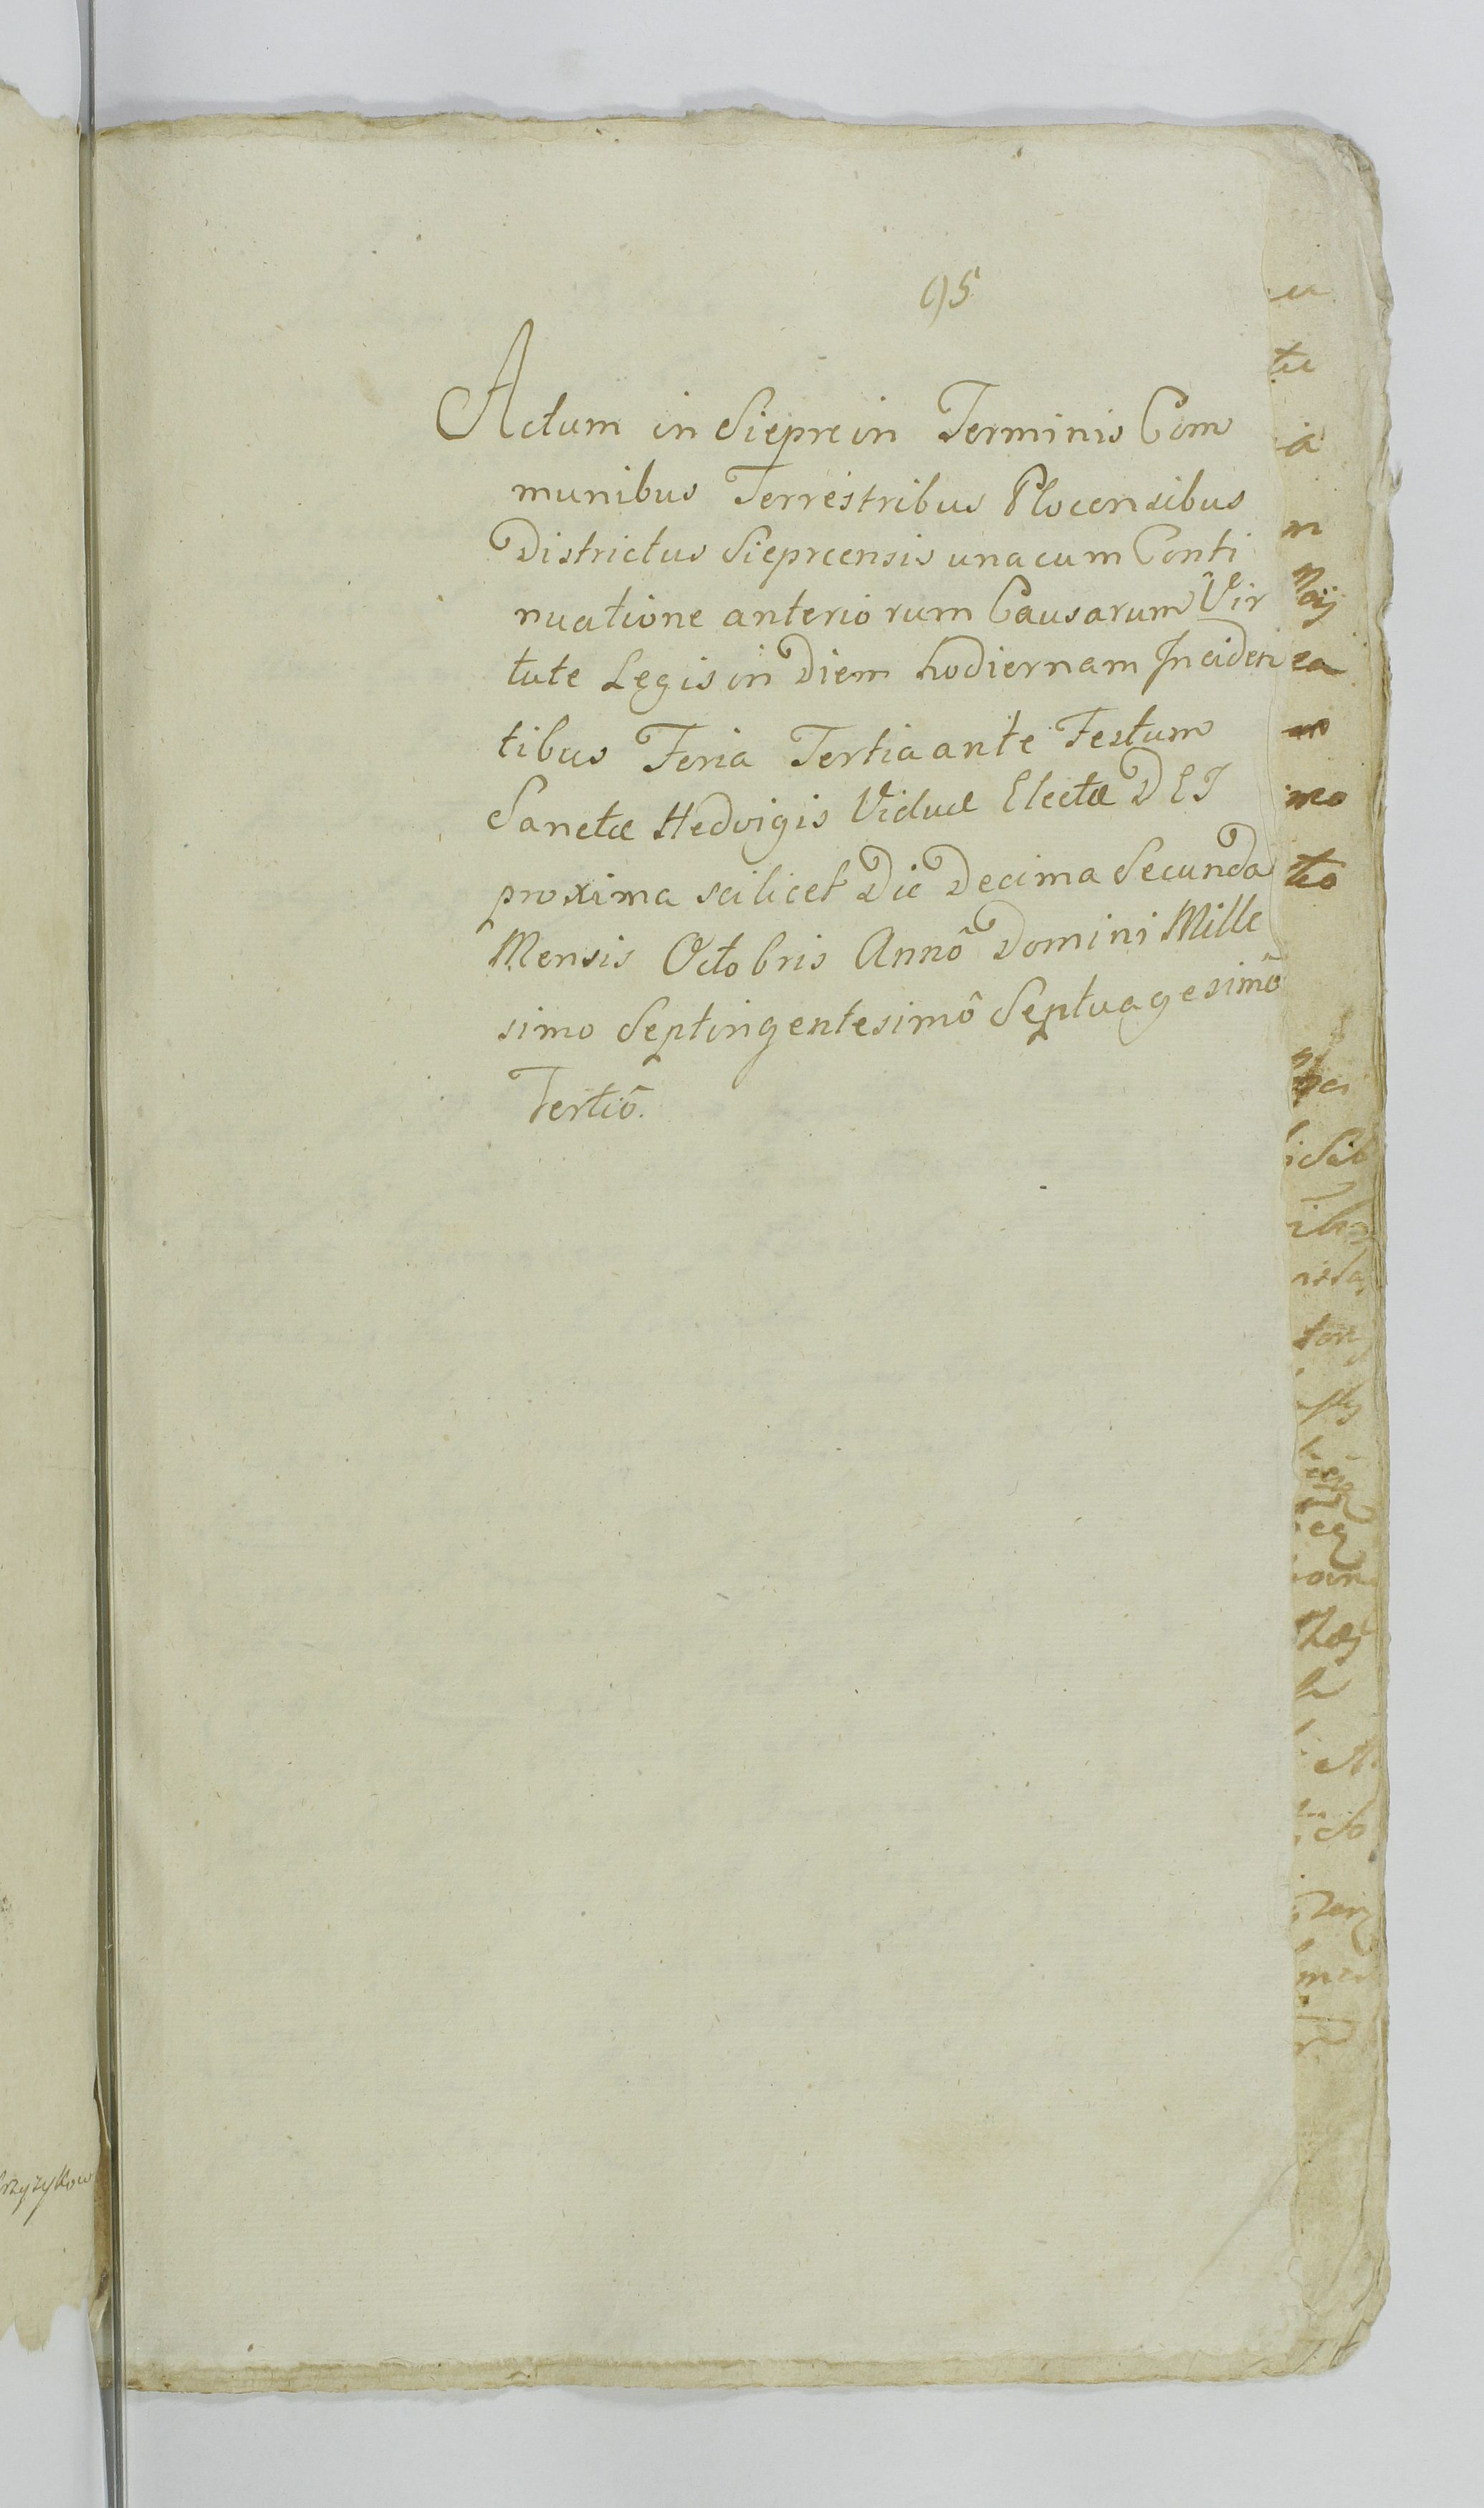 95
Actum in Sieprc in Terminis Com
munibus Terrestribus Plocensibus
Districtus Sieprcensis unacum Conti
nuatione anteriorum Causarum Vir
tute Legis in Diem hodiernam Inciden
tibus Feria Tertia ante Festum
Sanctæ Hedvigis Viduæ Electæ DEI
proxima scilicet Die Decima Secunda
Mensis Octobris Annô Domini Mille
simo Septingentesimô Septuagesimô
Tertiô.